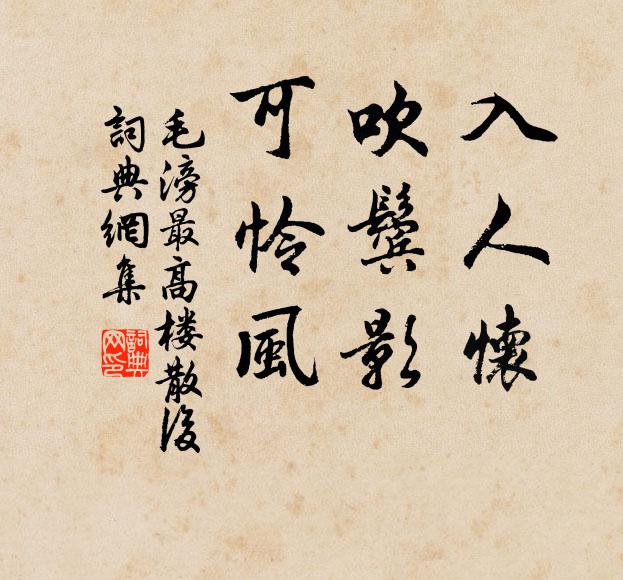 入人懷
吹鬢影
可怜風
毛滂最高楼散後
詞典網集
詞典網印